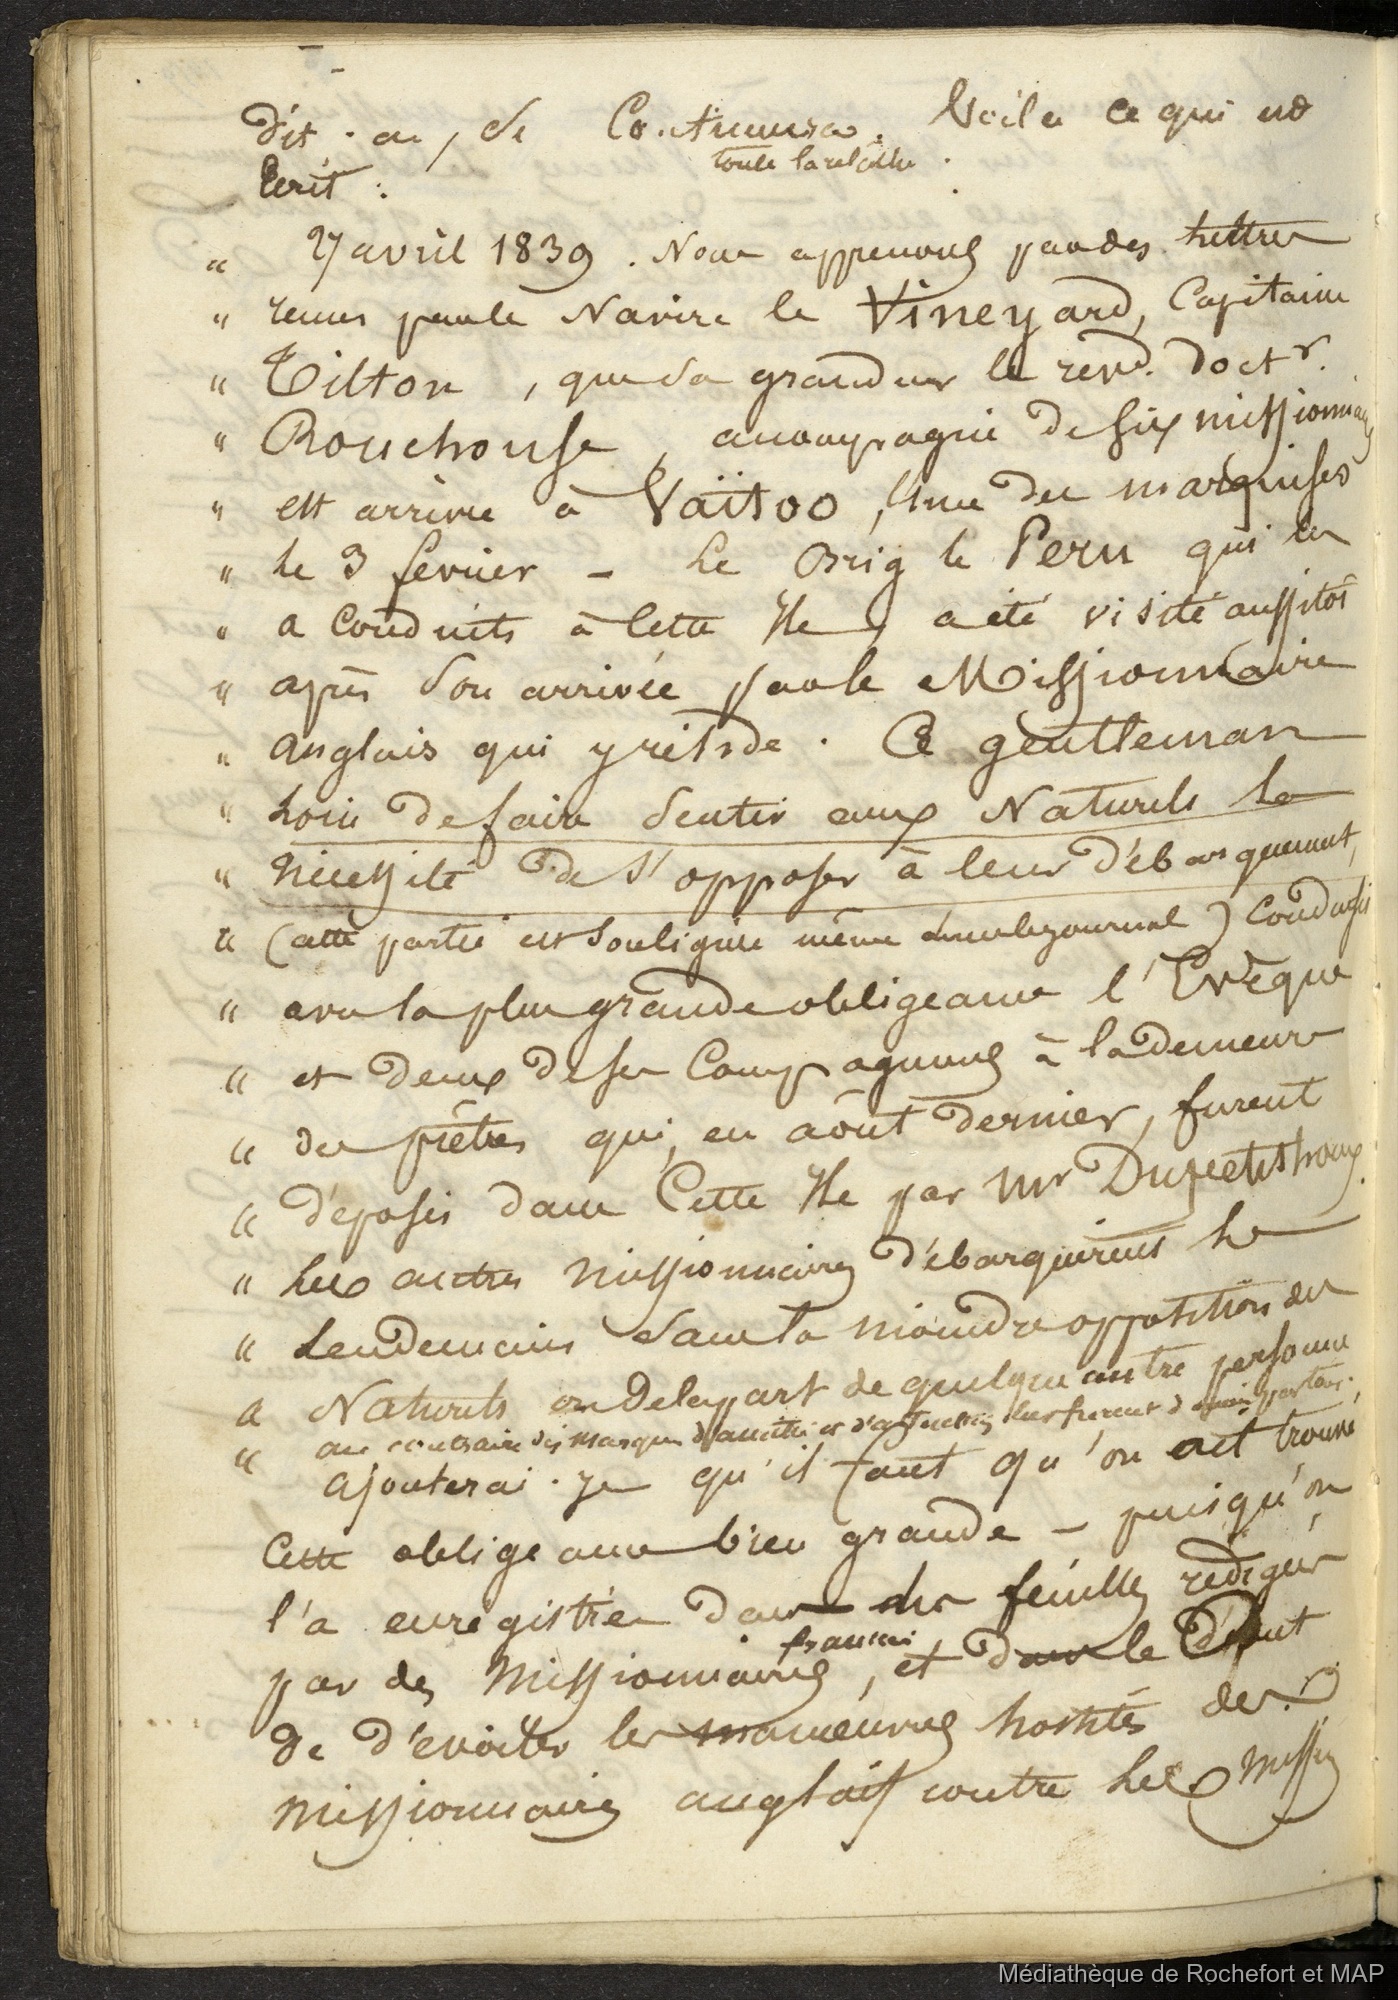 dit-on, de Continuer. Voila ce qui est
toute la relâche.
Ecrit :
" 27 avril 1839. Nous apprenons par des lettres
" reçues par le Navire le Vineyard, Capitaine
" Tilton, que sa grandeur le revd. doctr.
" Rouchouse, accompagné de six missionnaires
" est arrivé à Vaïtoo, l'une des marquises
" le 3 fevrier – Le Brig le Peru qui les
" a conduits à cette Ile, a été visité aussitôt
" après son arrivée par le Missionnaire
" anglais qui y réside. Ce gentleman
" loin de faire sentir aux Naturels la
" nécessité de s'opposer à leur débarquement,
" (cette partie est soulignée même dans le journal) conduisit
" avec la plus grande obligeance l'Evêque
" et deux de ses Compagnons à la demeure
" des prêtres qui, en août dernier, furent
" déposés dans Cette Ile par Mr Dupetithouars.
" Les autres missionnaires débarquèrent le
" Lendemain sans la moindre opposition des
" Naturels ou de la part de quelque autre personne
" au contraire des marques d'amitié et d'attention leur furent données partout.
ajouterai-je qu'il faut qu'on ait trouvé
Cette obligeance bien grande – puisqu'on
l'a enregistrée dans des feuilles rédigées
français
par des Missionnaires, et dans le but
de dévoiler les manœuvres hostiles des
missionnaires anglais contre les Missres